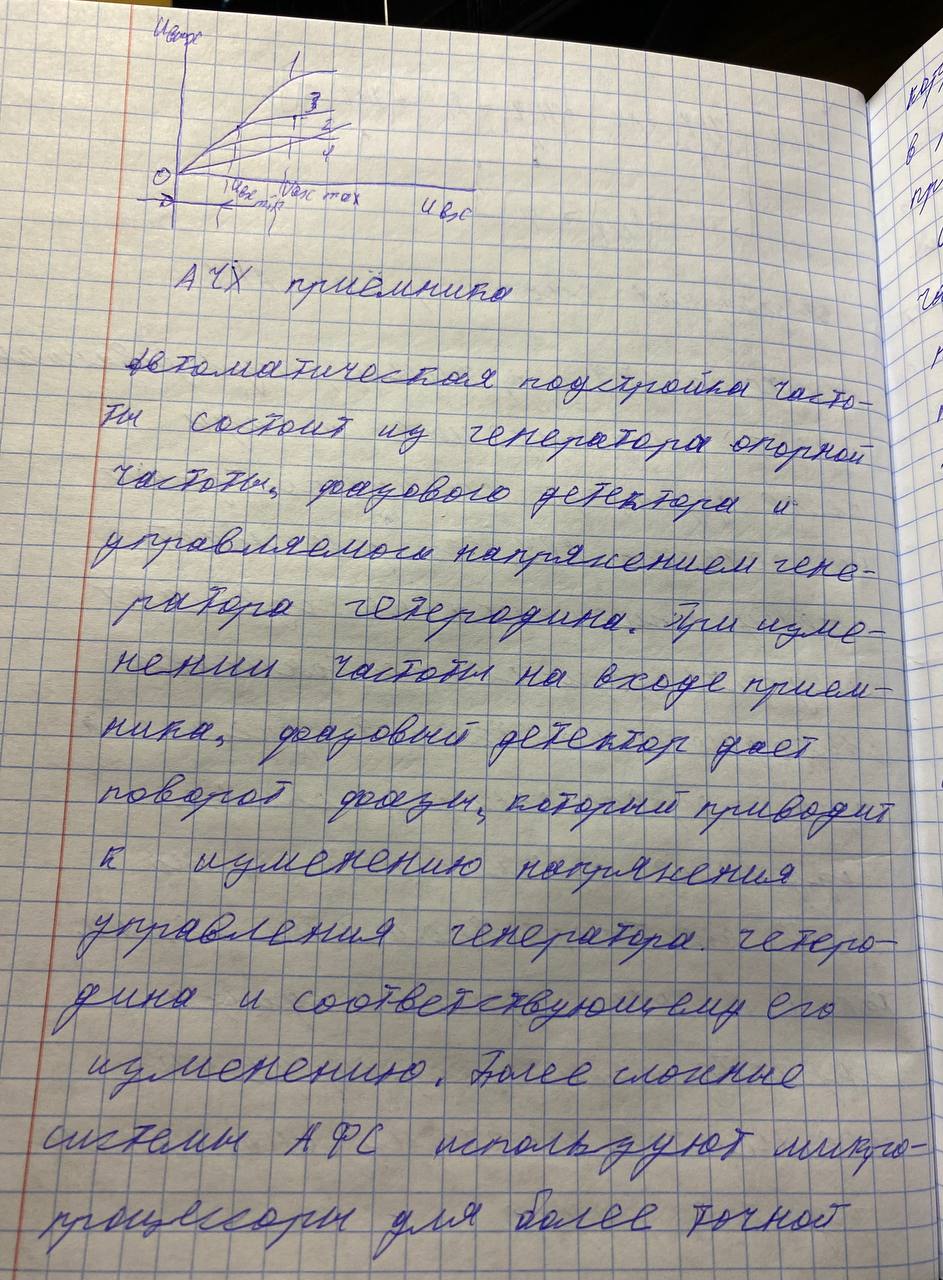 Uвых
1
3
2
4
0
Uвх min
Uвх max
Uвх
АЧХ приёмника
Автоматическая подстройка часто-
ты состоит из генератора опорной
частоты, фазового детектора и
управляемого напряжением гене-
ратора гетеродина. При изме-
нении частоты на входе прием-
ника, фазовый детектор дает
поворот фазы, который приводит
к изменению напряжения
управления генератора гетеро-
дина и соответствующему его
изменению. Более сложные
системы АФС используют микро-
процессоры для более точной